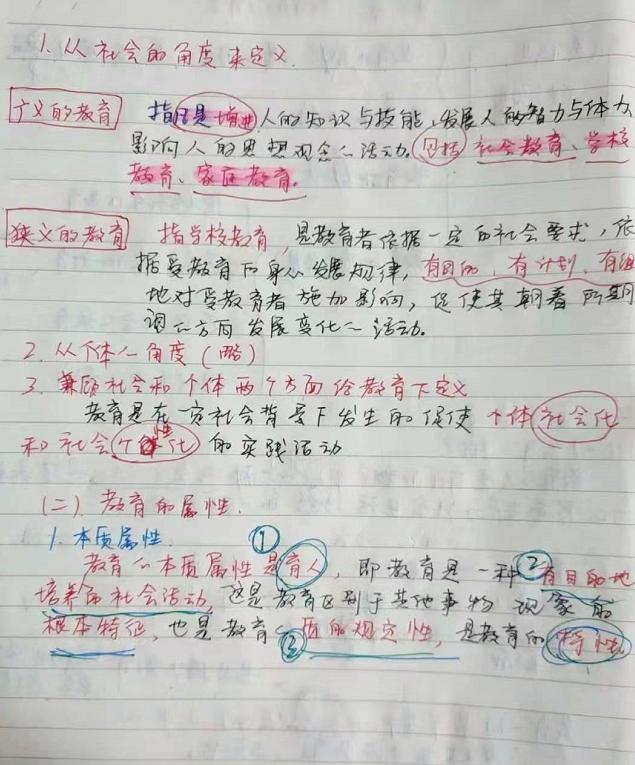 1. 从社会的角度来定义.
广义的教育 指凡是增进人的知识与技能、发展人的智力与体力
影响人的思想观念的活动. 包括 社会教育、学校
教育、家庭教育.
狭义的教育 指学校教育, 是教育者依据一定的社会要求, 依
据受教育的身心发展规律, 有目的、有计划、有组
地对受教育者施加影响, 促使其朝着所期
的方向发展变化的活动.
2. 从个体的角度 (略)
3. 兼顾社会和个体两个方面给教育下定义
教育是在一定社会背景下发生的促使个体社会化
和社会个性化的实践活动
(二) 教育的属性.
1. 本质属性. ①
教育的本质属性是育人, 即教育是一种 ② 有目的地
培养的社会活动, 这是教育区别于其他事物现象的
根本特征, 也是教育的 ③ 质的规定性, 是教育的特性